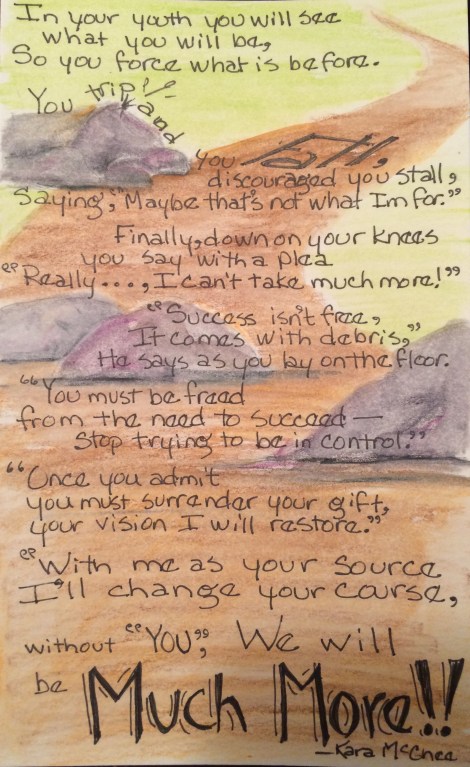 In your youth you will see
what you will be,
So you force what is before.
You trip!
and
you fall,
discouraged you stall,
Saying, "Maybe that's not what Im for."
Finally, down on your knees
you say with a plea
"Really...., I can't take much more!"
"Success isn't free,
It comes with debris,"
He says as you lay on the floor.
"You must be freed
from the need to succeed—
Stop trying to be in control."
"Once you admit
you must surrender your gift,
your vision I will restore."
"With me as your source
I'll change your course,
without "YOU", We will
be Much More!!
—Kara McGhee